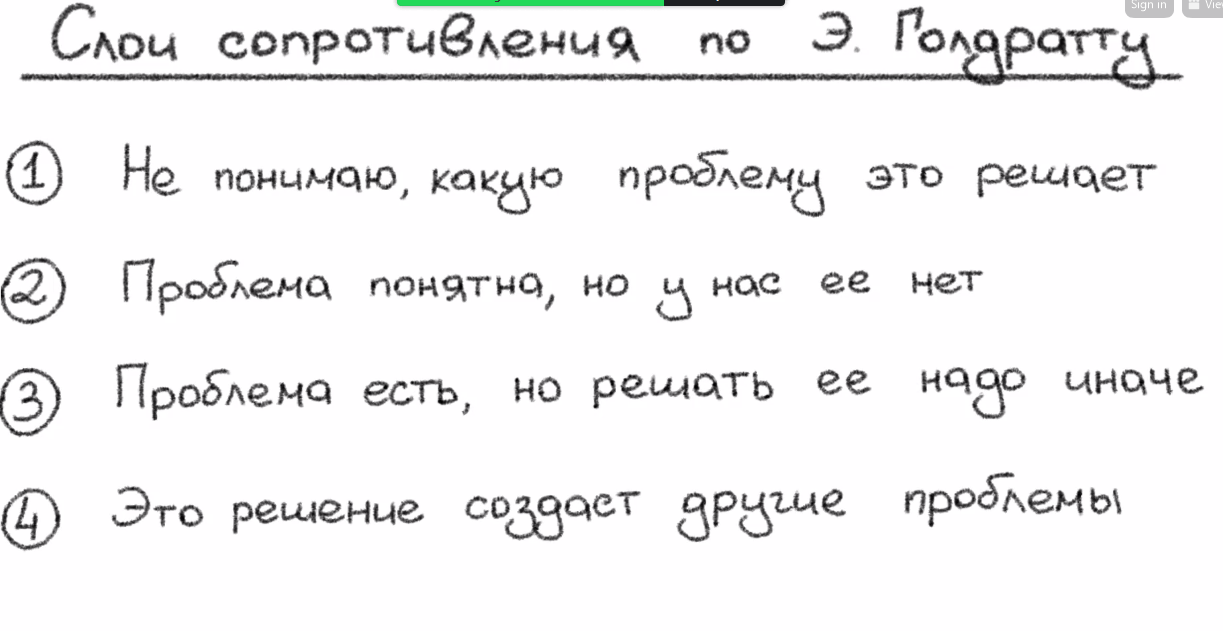 Sign in
Слои сопротивления по Э. Голдратту
1 Не понимаю, какую проблему это решает
2 Проблема понятна, но у нас ее нет
3 Проблема есть, но решать ее надо иначе
4 Это решение создаст другие проблемы